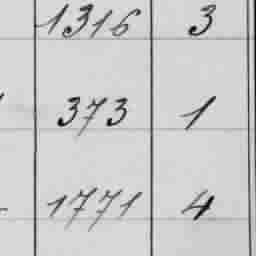 1316 3
373 1
1771 4